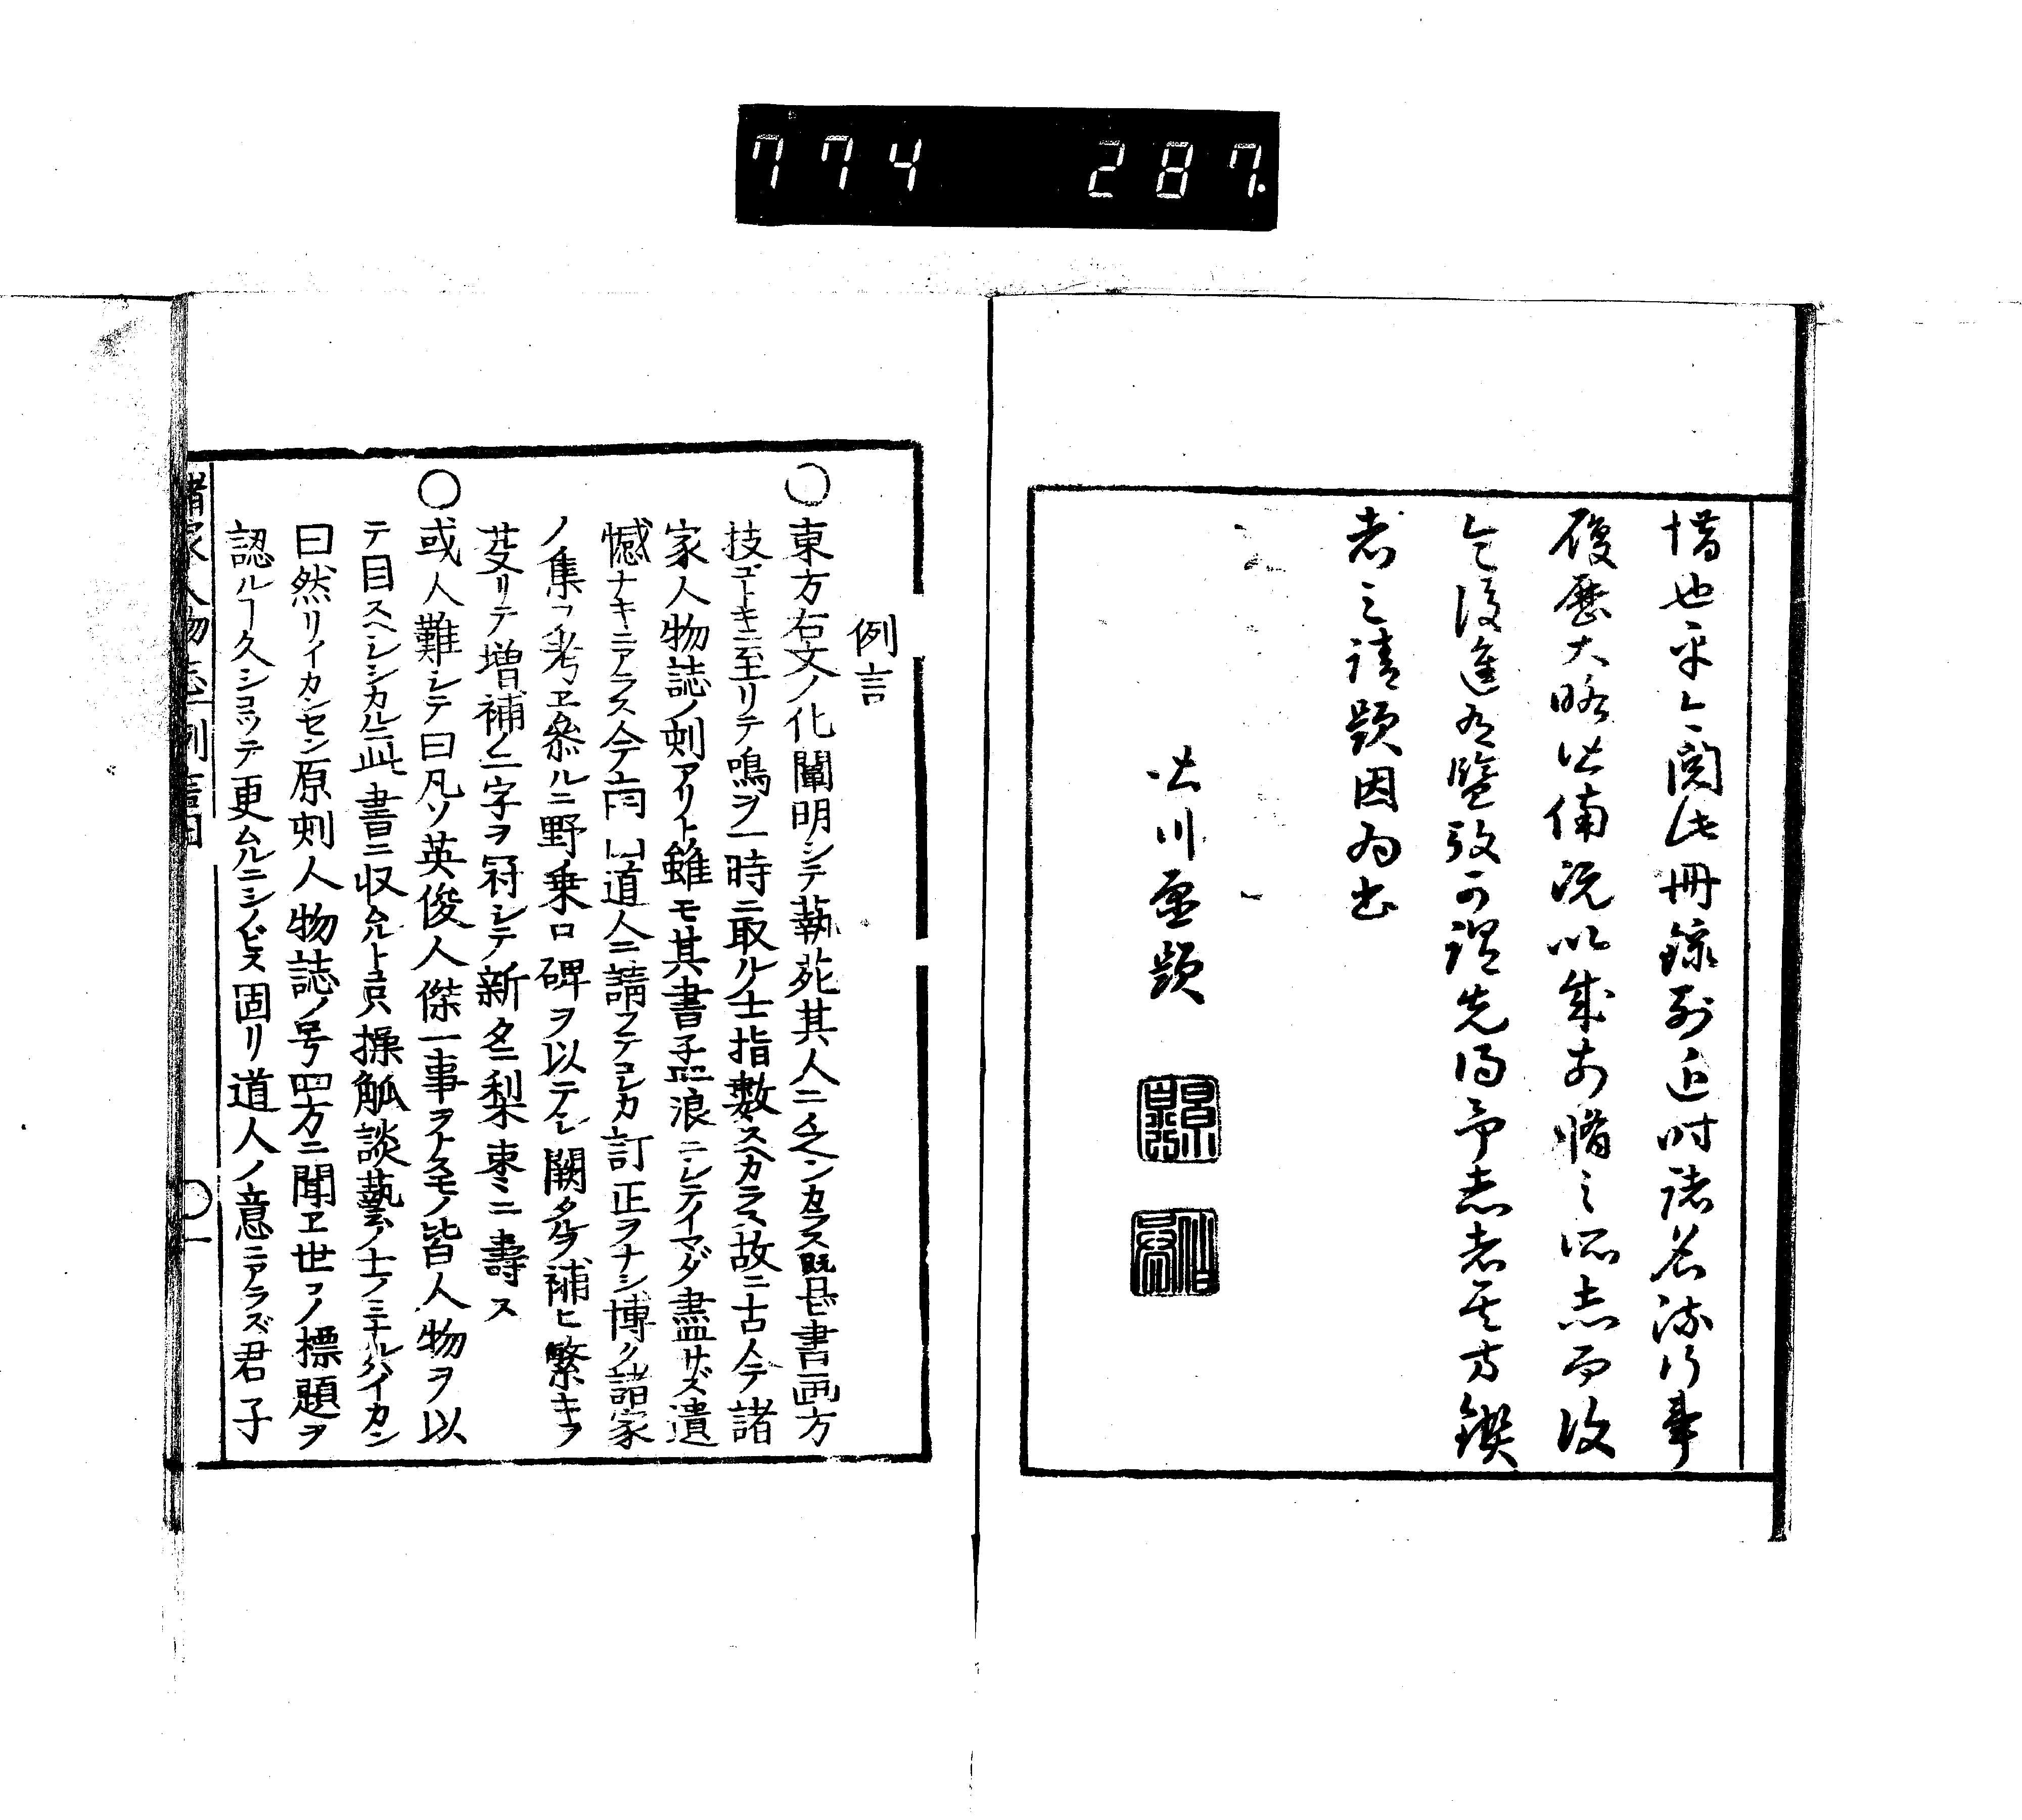 774 287.
惜也乎今閲此冊録列近时諸名流行事
履歴大略皆備況以集前脩之所志而後
今後進為鑒孜可謂先得予志者矣方鐫
者之請題因为書
例言
〇東方右文ノ化闡明シテ藝苑其人ニ乏シカラス既ニ書画方
技ノゴトキニ至リテ鳴ヲ一時ニ取ルノ士指數スヘカラス故ニ古今諸
家人物誌ノ刻アリト雖モ其書孟浪ニシテイマダ盡サズ遺
憾ナキニアラス今 道人ニ請フテコレカ訂正ヲナシ博ク諸家
ノ集ヲ考ヱ參ルニ野乗口碑ヲ以テシ闕タルヲ補ヒ繁キヲ
芟リテ増補ノ二字ヲ冠シテ新タニ梨棗ニ壽ス
〇或人難シテ曰凡ソ英俊人傑一事ヲトルモノ皆人物ヲ以
テ目スヘシシカルニ此書ニ収ムルトコロ只操觚談藝ノ士ノミナルハイカン
曰然リイカンセン原刻人物誌ノ号四方ニ聞ヱ世コノ標題ヲ
認ルヿ久シヨツテ更ムルニシノビス固リ道人ノ意ニアラズ君子
諸家人物誌 例言
〇一